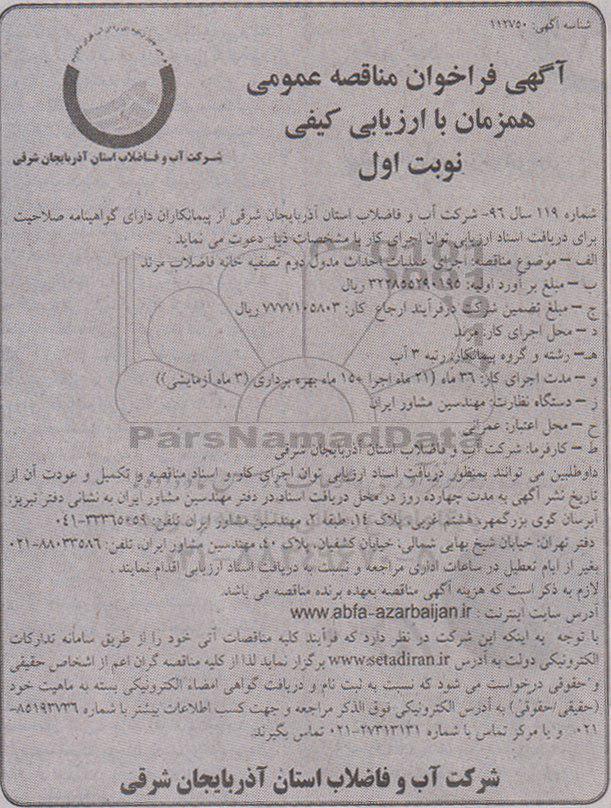 شناسه آگهی: ۱۱۲۷۵۰
آگهی فراخوان مناقصه عمومی
همزمان با ارزیابی کیفی
نوبت اول
شرکت آب و فاضلاب استان آذربایجان شرقی
شماره ۱۱۹ سال ۹۶- شرکت آب و فاضلاب استان آذربایجان شرقی از پیمانکاران دارای گواهینامه صلاحیت
برای دریافت اسناد ارزیابی توان اجرای کار با مشخصات ذیل دعوت می نماید :
الف – موضوع مناقصه: اجرای عملیات احداث مدول دوم تصفیه خانه فاضلاب مرند
ب – مبلغ بر آورد اولیه: ۳۲۲۸۵۵۲۹۰۱۹۵ ریال
ج – مبلغ تضمین شرکت درفرآیند ارجاع کار: ۷۷۷۷۱۰۵۸۰۳ ریال
د – محل اجرای کار: مرند
هـ – رشته و گروه پیمانکار: رتبه ۳ آب
و – مدت اجرای کار: ۳۶ ماه (۲۱ ماه اجرا +۱۵ ماه بهره برداری (۳ ماه آزمایشی))
ز – دستگاه نظارت: مهندسین مشاور ایران
ح – محل اعتبار: عمرانی
ط – کارفرما: شرکت آب و فاضلاب استان آذربایجان شرقی
ParsNamadData
داوطلبین می توانند بمنظور دریافت اسناد ارزیابی توان اجرای کار و اسناد مناقصه و تکمیل و عودت آن از
تاریخ نشر آگهی به مدت چهارده روز در محل دریافت اسناد در دفتر مهندسین مشاور ایران به نشانی دفتر تبریز:
آبرسان کوی بزرگمهر هشتم غربی، پلاک ۱۴، طبقه ۲، مهندسین مشاور ایران تلفن: ۳۳۳۶۵۰۵۹-۰۴۱
دفتر تهران: خیابان شیخ بهایی شمالی، خیابان کشفیان پلاک ۴۰، مهندسین مشاور ایران، تلفن: ۸۸۰۳۳۵۸۶-۰۲۱
بغیر از ایام تعطیل در ساعات اداری مراجعه و نسبت به دریافت اسناد ارزیابی اقدام نمایند .
لازم به ذکر است که هزینه آگهی مناقصه بعهده برنده مناقصه می باشد.
آدرس سایت اینترنت : www.abfa-azarbaijan.ir
با توجه به اینکه این شرکت در نظر دارد که فرآیند کلیه مناقصات آتی خود را از طریق سامانه تدارکات
الکترونیکی دولت به آدرس www.setadiran.ir برگزار نماید لذا از کلیه مناقصه گران اعم از اشخاص حقیقی
و حقوقی درخواست می شود که نسبت به ثبت نام و دریافت گواهی امضاء الکترونیکی بسته به ماهیت خود
(حقیقی/حقوقی) به آدرس الکترونیکی فوق الذکر مراجعه و جهت کسب اطلاعات بیشتر با شماره ۸۵۱۹۳۷۳۶-
۰۲۱ و یا مرکز تماس با شماره ۲۷۳۱۳۱۳۱-۰۲۱ تماس بگیرند.
شرکت آب و فاضلاب استان آذربایجان شرقی